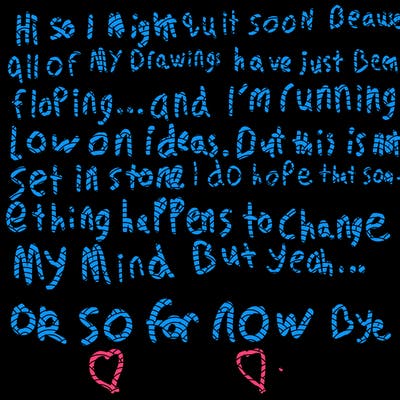 Hi so I Might quit sooN Beause
all of MY Drawings have just Bem
floPing... and I'm running
Low on ideas. But this is not
set in stone I do hope that som
ething happens to change
MY Mind But yeah...
OR so for NOW Bye